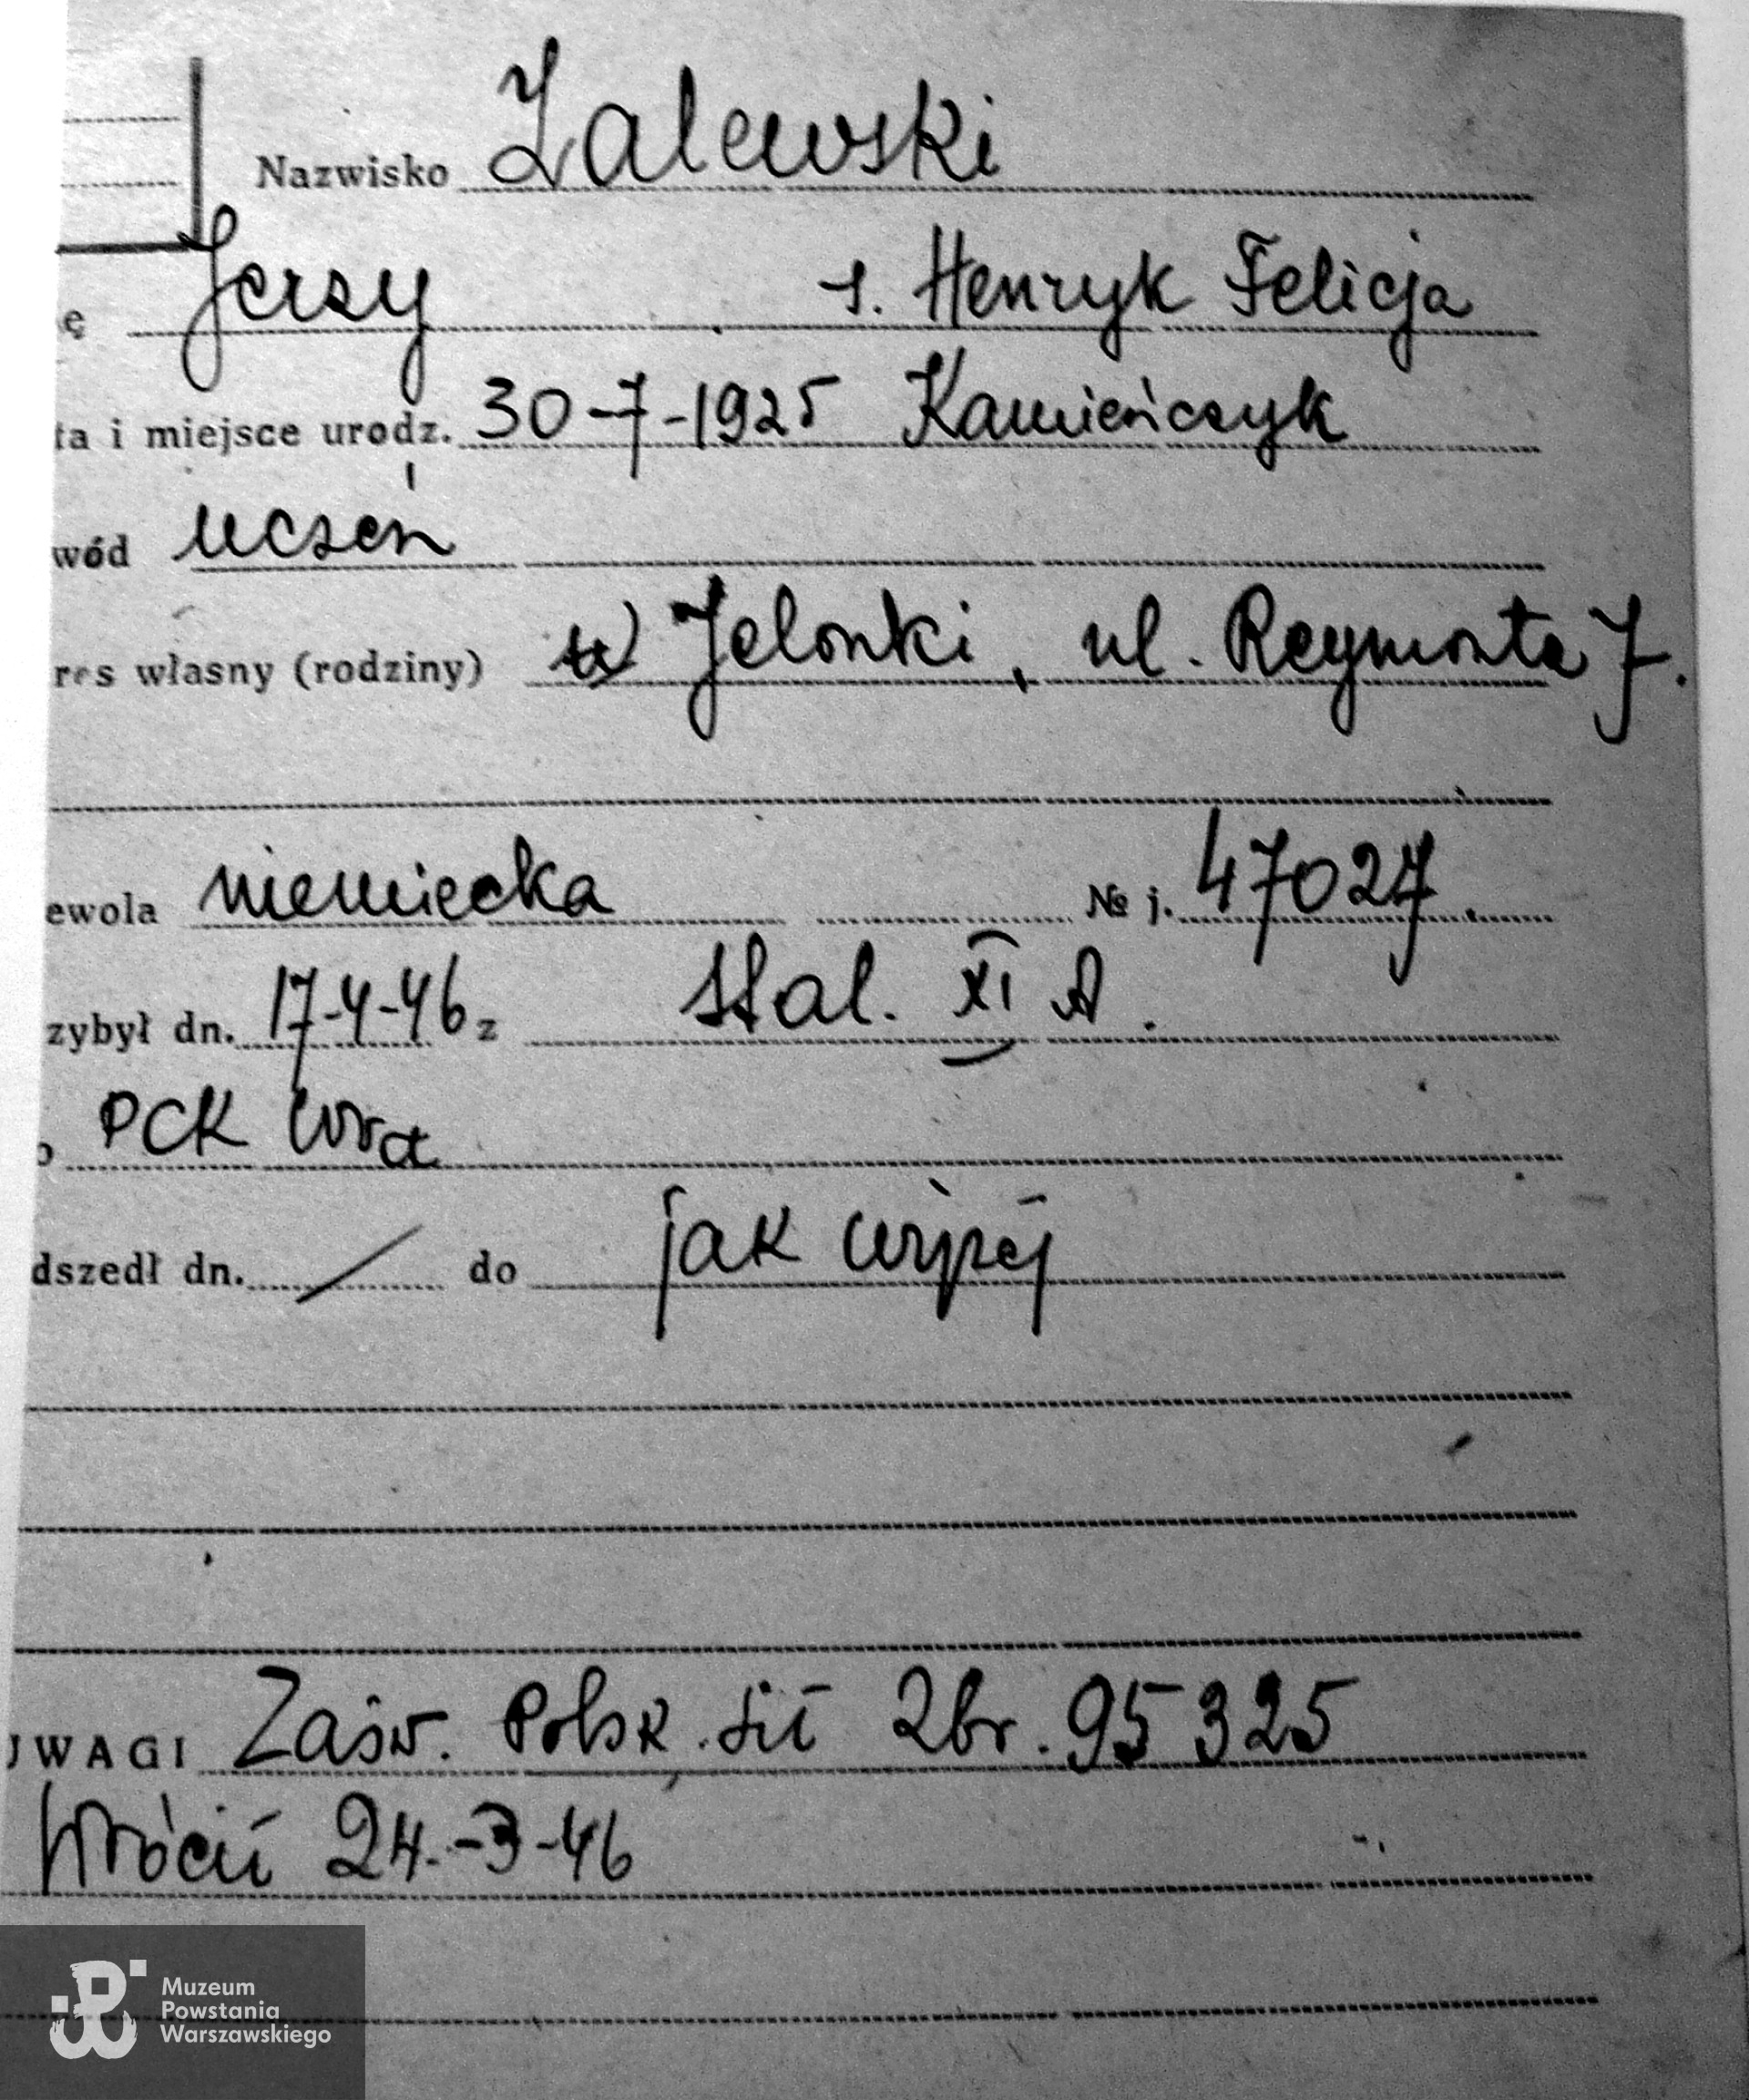 Nazwisko Zalewski
ę Jerzy s. Henryk Felicja
ta i miejsce urodz. 30-7-1925 Kamieńczyk
wód uczeń
res własny (rodziny) Jelonki, ul. Reymonta 7.
ewola niemiecka № j. 47027.
zybył dn. 17-4-46 z stal. XI A.
PCK Wwa
dszedł dn. / do jak wyżej
UWAGI Zaśw. Polsk. sił Zbr. 95325
Wrócił 24.-3-46
Muzeum
Powstania
Warszawskiego